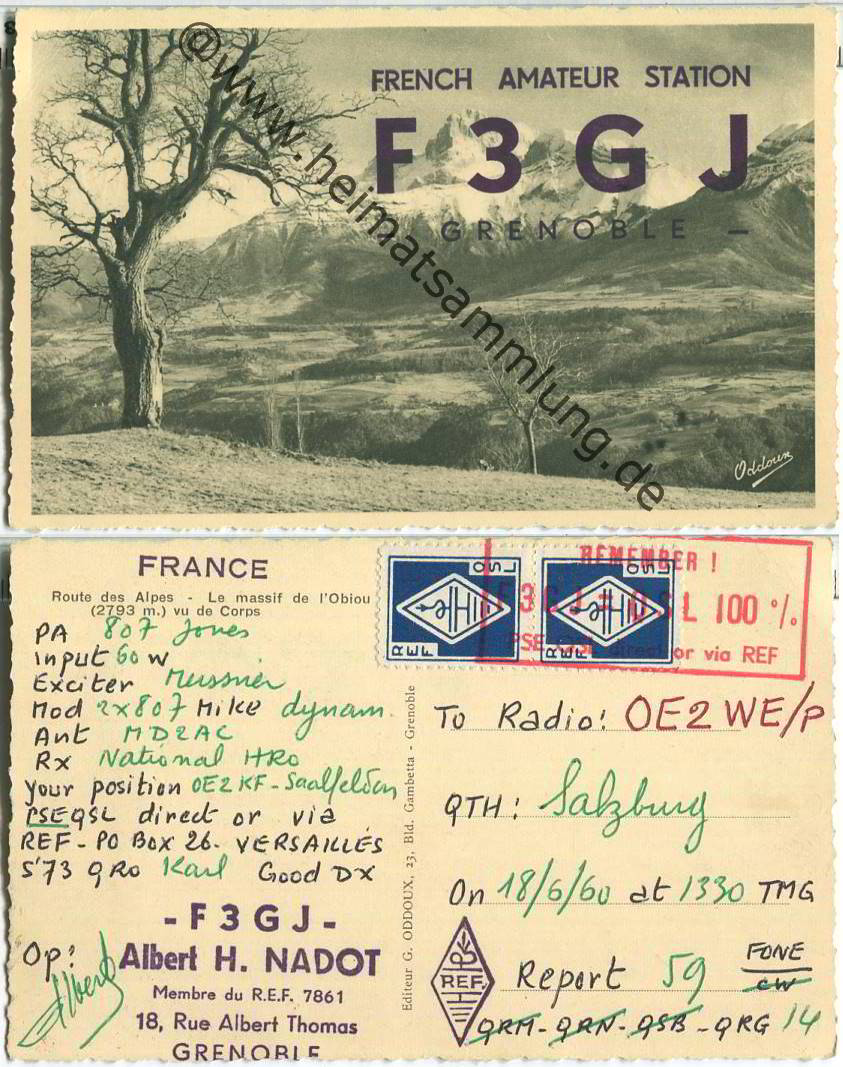 FRENCH AMATEUR STATION
F3GJ
- GRENOBLE -
@www.heimatsammlung.de
Oddoux
FRANCE
Route des Alpes - Le massif de l'Obiou
(2793 m.) vu de Corps
PA 807 Jones
Input 60 W
Exciter Meissner
Mod 2x807 Mike dynam.
Ant MD2AC
Rx National HRO
your position OE2KF-Saalfelden
PSE QSL direct or via
REF - PO Box 26 - VERSAILLES
S'73 QRO Karl Good DX
- F3GJ -
Op: Albert
Albert H. NADOT
Membre du R.E.F. 7861
18, Rue Albert Thomas
GRENOBLE
Editeur G. ODDOUX, 23, Bld. Gambetta - Grenoble
QSL
REF
QSL
REF
REMEMBER !
F3GJ = QSL 100 %
PSE QSL direct or via REF
To Radio: OE2WE/P
QTH: Salzburg
On 18/6/60 at 1330 TMG
REF
Report 59 FONE
CW
QRM - QRN - QSB - QRG 14